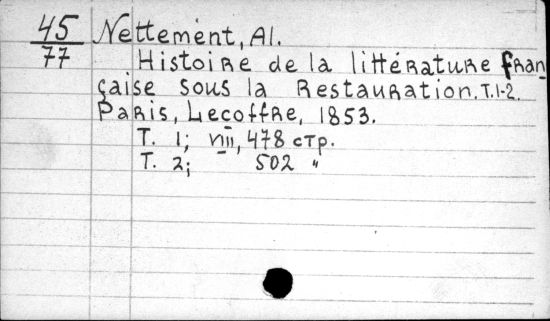 45 Nettement, Al.
77 Histoire de la littérature fran
çaise sous la Restauration. T.1-2.
Paris, Lecoffre, 1853.
T. 1; VIII, 478 стр.
T. 2; 502 "